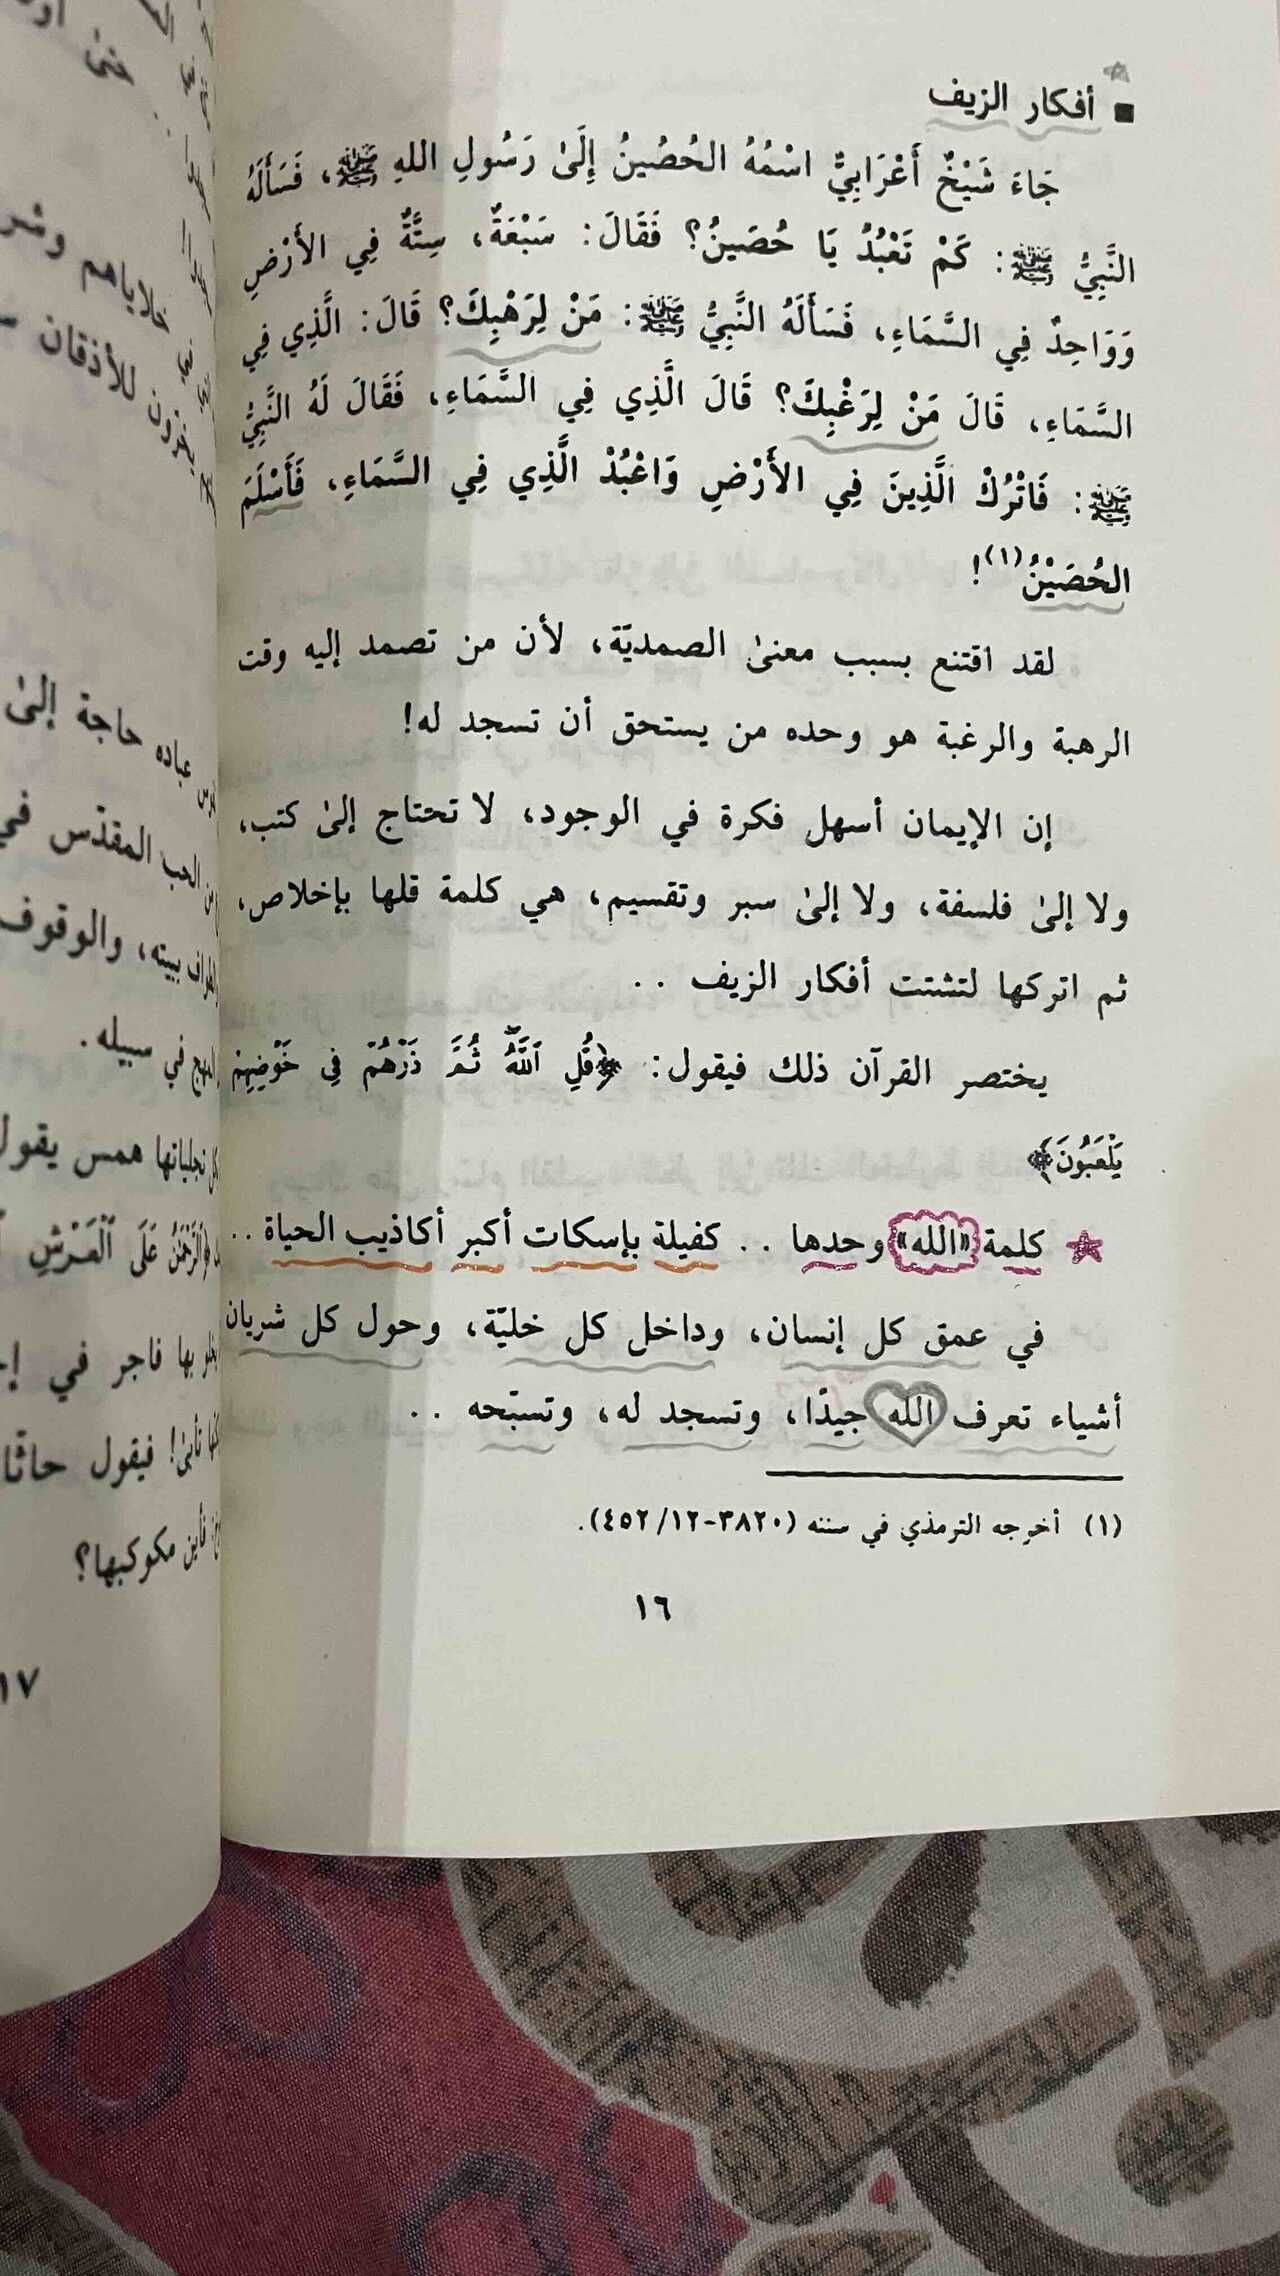 ■ أفكار الزيف
جَاءَ شَيْخٌ أَعْرَابِيٌّ اسْمُهُ الحُصُينُ إِلَىٰ رَسُولِ اللهِ ﷺ، فَسَأَلَهُ
النَّبِيُّ ﷺ: كَمْ تَعْبُدُ يَا حُصَينُ؟ فَقَالَ: سَبْعَةٌ، سِتَّةٌ فِي الأَرْضِ
وَوَاحِدٌ فِي السَّمَاءِ، فَسَأَلَهُ النَّبِيُّ ﷺ: مَنْ لِرَهْبِكَ؟ قَالَ: الَّذِي فِي
السَّمَاءِ، قَالَ مَنْ لِرَغْبِكَ؟ قَالَ الَّذِي فِي السَّمَاءِ، فَقَالَ لَهُ النَّبِيُّ
ﷺ: فَاتْرُكْ الَّذِينَ فِي الأَرْضِ وَاعْبُدْ الَّذِي فِي السَّمَاءِ، فَأَسْلَمَ
الحُصَيْنُ(١)!
لقد اقتنع بسبب معنىٰ الصمديّة، لأن من تصمد إليه وقت
الرهبة والرغبة هو وحده من يستحق أن تسجد له!
إن الإيمان أسهل فكرة في الوجود، لا تحتاج إلىٰ كتب،
ولا إلىٰ فلسفة، ولا إلىٰ سبر وتقسيم، هي كلمة قلها بإخلاص،
ثم اتركها لتشتت أفكار الزيف ..
يختصر القرآن ذلك فيقول: ﴿قُلِ ٱللَّهُۖ ثُمَّ ذَرْهُمْ فِى خَوْضِهِمْ
يَلْعَبُونَ﴾
كلمة «الله» وحدها .. كفيلة بإسكات أكبر أكاذيب الحياة ..
في عمق كل إنسان، وداخل كل خليّة، وحول كل شريان
أشياء تعرف الله جيدًا، وتسجد له، وتسبّحه ..
(١) أخرجه الترمذي في سننه (٣٨٢٠-٤٥٢/١٢).
١٦
خلاياهم
يخرّون للأذقان
عباده حاجة إلىٰ
الحب المقدّس في
بيته، والوقوف
في سبيله.
تجلياتها همس يقول
عَلَى ٱلْعَرْشِ
بها فاجر في
تأبىٰ! فيقول حاثًا
فأين مكوكبها؟
١٧